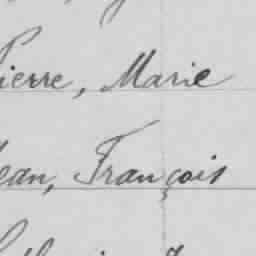 Pierre, Marie
Jean, François